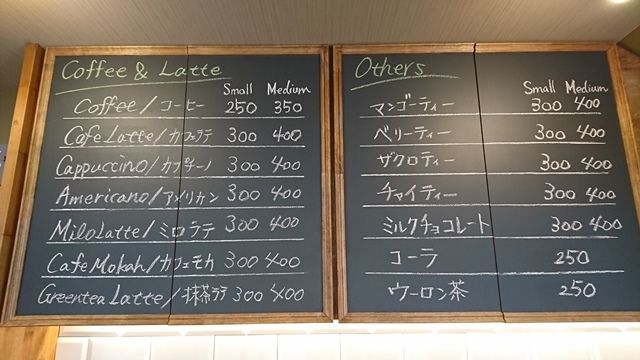 Coffee & Latte
Small Medium
Coffee/コーヒー 250 350
Cafe Latte/カフェラテ 300 400
Cappuccino/カプチーノ 300 400
Americano/アメリカン 300 400
Milo Latte/ミロラテ 300 400
Cafe Mokah/カフェモカ 300 400
Greentea Latte/抹茶ラテ 300 400
Others
Small Medium
マンゴーティー 300 400
ベリーティー 300 400
ザクロティー 300 400
チャイティー 300 400
ミルクチョコレート 300 400
コーラ 250
ウーロン茶 250